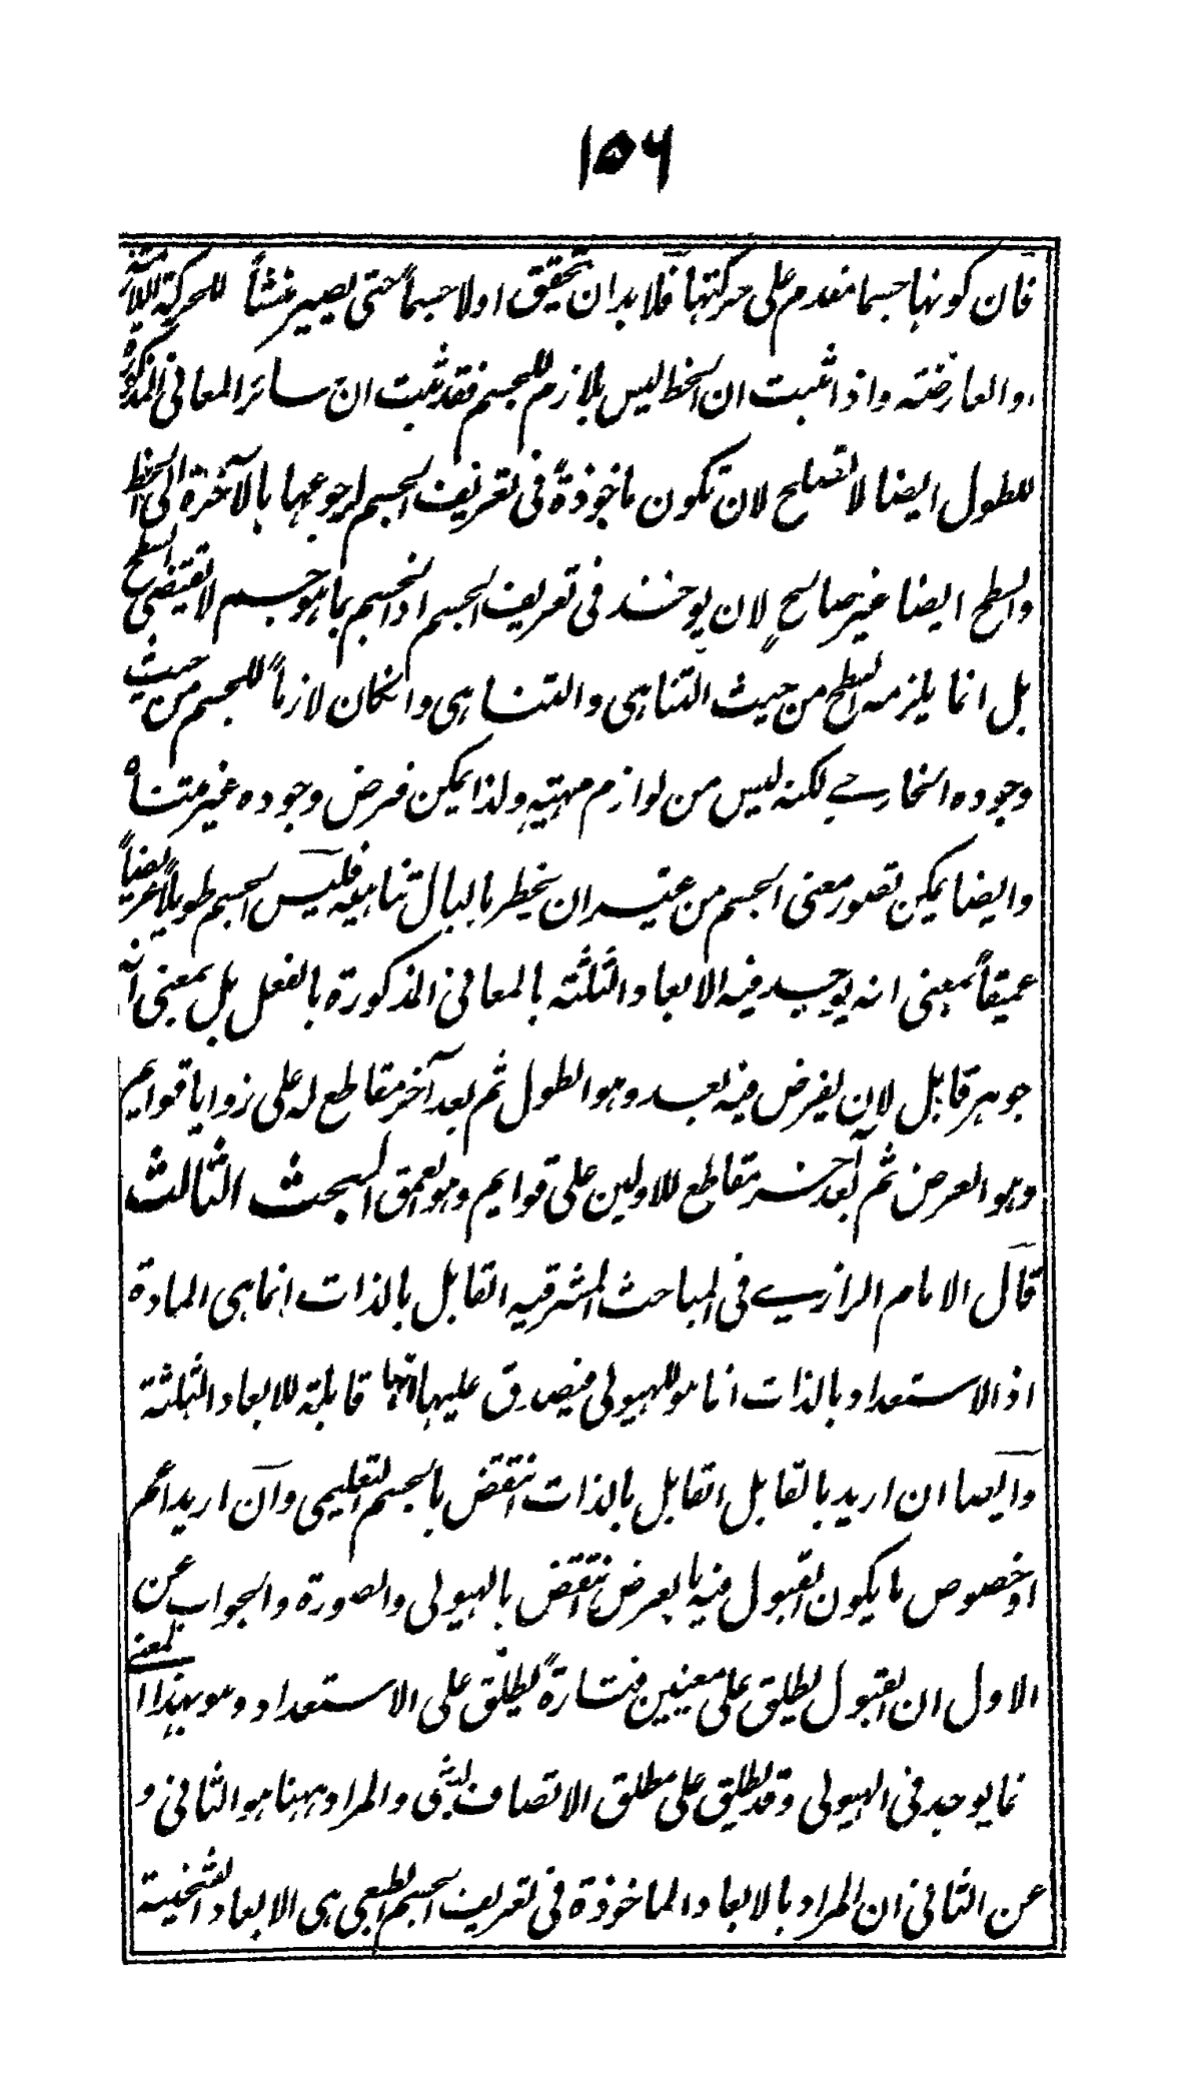 ۱۵۶
فان كونها جسما مقدم على حركتها فلا بد ان تحقق اولا جسماً حتى يصير منشأً للحركة اللازمة
والعارضته واذا ثبت ان الخط ليس بلازم للجسم فقد ثبت ان سائر المعانى المذكورة
للطول ايضا لا تصلح لان تكون ماخوذةً فى تعريف الجسم لرجوعها بالآخرة الى الخط
والسطح ايضا غير صالح لان يوخذ فى تعريف الجسم اذ الجسم بما هو جسم لا يقتضى السطح
بل انما يلزمه السطح من حيث التناهى والتناهى وانكان لازماً للجسم من حيث
وجوده الخارجے لكنه ليس من لوازم مهيته ولذا يمكن فرض وجوده غير متناه
وايضا يمكن تصور معنى الجسم من غير ان يخطر بالبال تناهيه فليس الجسم طويلاً عريضاً
عميقاً بمعنى انه يوجد فيه الابعاد الثلثه بالمعانى المذكورة بالفعل بل بمعنى انه
جوهر قابل لان يفرض فيه بعد وهو الطول ثم بعد آخر مقاطع له على زوايا قوايم
وهو العرض ثم بعد آخر مقاطع للاولين على قوايم وهو العمق المبحث الثالث
قال الامام الرازے فى المباحث المشرقيه القابل بالذات انما هى المادة
اذ الاستعداد بالذات انما هو للهيولى فيصدق عليها انها قابلة للابعاد الثلثة
وايضا ان اريد بالقابل القابل بالذات انتقض بالجسم التعليمى وان اريد اعم
اوخصوص ما يكون القبول فيه بالعرض انتقض بالهيولى والصورة والجواب عن
الاول ان القبول يطلق على معنيين فتارةً يطلق على الاستعداد وهو بهذا المعنى
انما يوجد فى الهيولى وقد يطلق على مطلق الاتصاف بشى والمراد ههنا هو الثانى و
عن الثانى ان المراد بالابعاد الماخوذة فى تعريف الجسم الطبعى هى الابعاد الشخصية